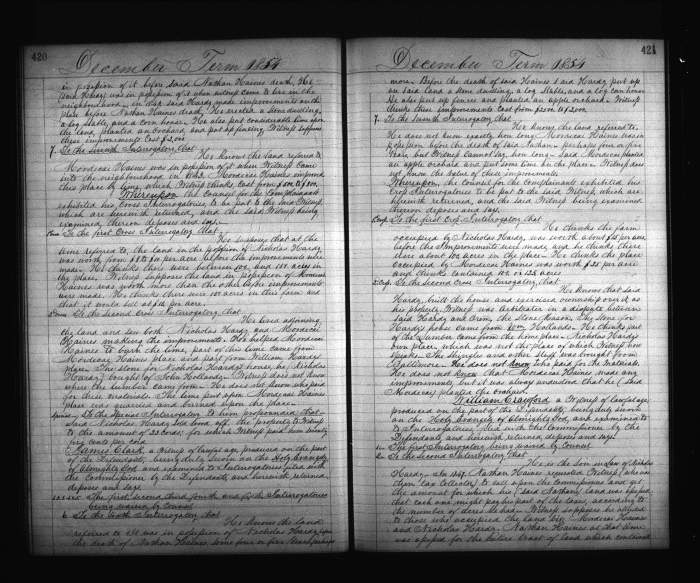 420
December Term 1854
in possession of it before said Nathan Haines death, He
said Hardy was in possession of it when witness came to live in the
neighbourhood, in 1843, said Hardy made improvements on the
place before Nathan Haines death, He erected a stone dwelling,
a log stable, and a corn house, He also put considerable lime upon
the land, planted an orchard, and put up fencing, witness supposes
these improvements cost $2,000
7. To the seventh Interrogatory, that
He knows the land referred to
Mordecai Haines was in possession of it when witness came
into the neighbourhood in 1843. Mordecai Haines improved
this place by lime, which witness thinks, cost from $500 to $700,
Whereupon the Counsel for the Complainants
exhibited his cross Interrogatories, to be put to the said witness,
which are herewith returned, and the said witness being
examined thereon deposes and says.
To the first Cross Interrogatory that
He supposes that at the
time referred to, the land in the possession of Nicholas Hardy
was worth from $8 to $10 per acre before the improvements were
made. He thinks there were between 100, and 120 acres in the
place. Witness supposes the land in possession of Mordecai
Haines was worth more than the other before improvements
were made. He thinks there were 100 acres in this farm and
that it would sell at $12 per acre.
To the second Cross Interrogatory, that
He lives adjoining
the land and saw both Nicholas Hardy and Mordecai
Haines making the improvements. He helped Mordecai
Haines to burn the lime, part of this lime came from
Mordecai Haines place and part from William Hardys
place. The stone for Nicholas Hardys house, he (Nicholas
Hardy) bought of John Hollands. Witness does not know
where the lumber came from. He does not know who paid
for these materials. The lime put upon Mordecai Haines
place was quarried and burned upon the place.
To the Special Interrogatory to him propounded that
Said Nicholas Hardy sold wood off the property to witness
to the amount of 20 cords, for which witness paid him seventy
five cents per cord
James Clark, a witness of lawful age produced on the part
of the Defendants, being duly sworn on the Holy Evangely
of Almighty God and examined to Interrogatories filed with
the Commissioner by the Defendants, and herewith returned,
deposes and says.
The first, second, third, fourth and fifth Interrogatories
being waived by Counsel
6. To the sixth Interrogatory that
He knows the land
referred to. It was in possession of Nicholas Hardy, upon
the death of Nathan Haines, some four or five years perhaps
421
December Term 1854
more. Before the death of said Haines said Hardy put up
on said land a stone dwelling, a log stable, and a log corn house.
He also put up fences and planted an apple orchard. Witness
thinks these improvements cost from $1500 to $2,000.
7. To the seventh Interrogatory that
He knows the land referred to.
He does not know exactly how long Mordecai Haines was in
possession before the death of said Nathan, perhaps four or five
years, but witness cannot say how long. Said Mordecai planted
an apple orchard and put some lime on the place. Witness does
not know the value of these improvements.
Whereupon, the counsel for the complainants exhibited his
cross Interrogatories to be put to the said witness, which are
herewith returned, and the said witness being examined
thereon deposes and says.
To the first Cross Interrogatory that
He thinks the farm
occupied by Nicholas Hardy, was worth about $15 per acre
before the improvements were made and he thinks there
were about 102 acres in the place. He thinks the place
occupied by Mordecai Haines was worth $25 per acre
and thinks contained 100 or 125 acres
To the second Cross Interrogatory, that
He knows that said
Hardy, built the house and exercised ownership over it as
his property. Witness was Arbitrator in a dispute between
said Hardy and Crom, the stone Mason. The stone for
Hardys house came from Wm Hollands. He thinks part
of the lumber came from the home place, Nicholas Hardys
own place, which was not the place of which witness now
speaks. The shingles and other stuff was brought from
Baltimore. He does not know who paid for the materials.
He does not know that Mordecai Haines made any
improvements, but it was always understood that he (said
Mordecai) planted the orchard.
William Crawford, a witness of lawful age,
produced on the part of the Defendants, being duly sworn
on the Holy Evangely of Almighty God, and examined to
to Interrogatories filed with the Commissioner by the
Defendants and herewith returned, deposes and says:
1. The first Interrogatory being waived by Counsel
2. To the second Interrogatory, that
He is the son in law of Nicholas
Hardy. In 1847, Nathan Haines requested witness (who was
then Tax Collector) to call upon the Commissioners and get
the amount for which his (said Nathans) land was assessed
that each one might pay his part of the taxes, according to
the number of acres he had. Witness supposes he alluded
to those who occupied the land viz: Mordecai Haines
and Nicholas Hardy. Nathan Haines at that time
was assessed for the entire tract of land which contained